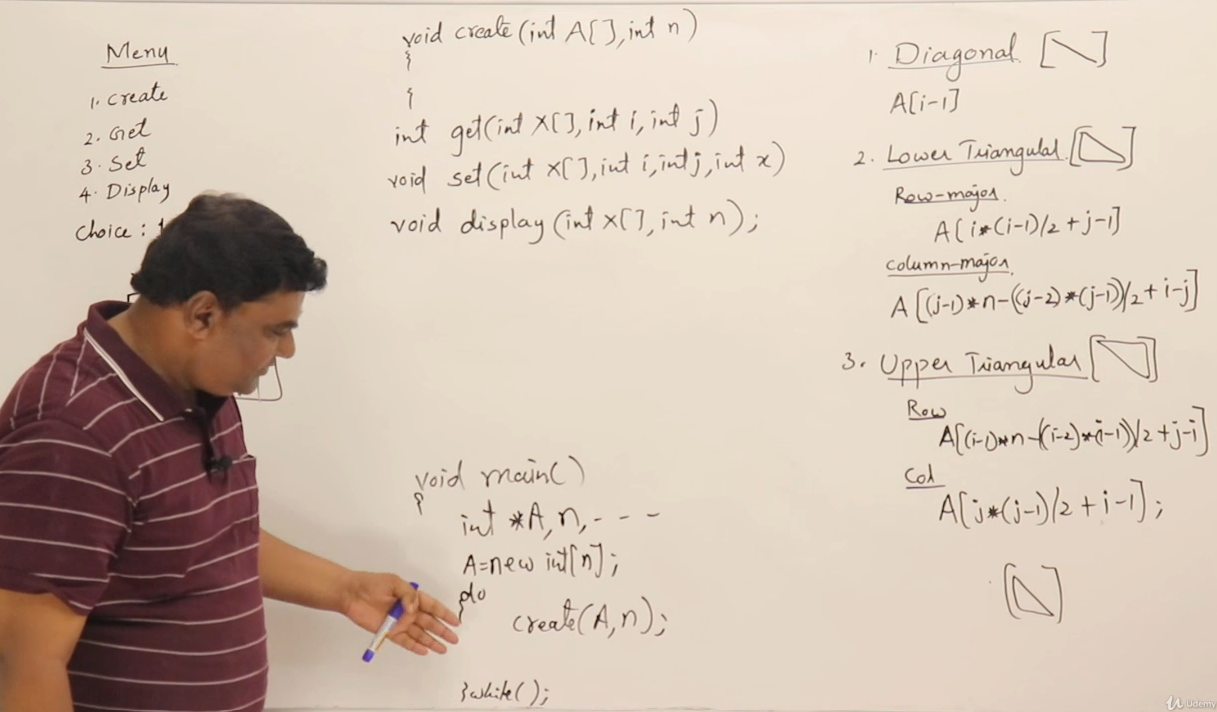 Menu
1. Create
2. Get
3. Set
4. Display
Choice :
void create(int A[], int n)
{
}
int get(int X[], int i, int j)
void set(int X[], int i, int j, int x)
void display(int X[], int n);
void main()
{
int *A, n, - - -
A=new int[n];
do
{
create(A, n);
}while();
1. Diagonal
A[i-1]
2. Lower Triangular
Row-major
A[i*(i-1)/2 + j-1]
column-major
A[(j-1)*n-((j-2)*(j-1))/2 + i-j]
3. Upper Triangular
Row
A[(i-1)*n-((i-2)*(i-1))/2 + j-i]
Col
A[j*(j-1)/2 + i-1];
Udemy